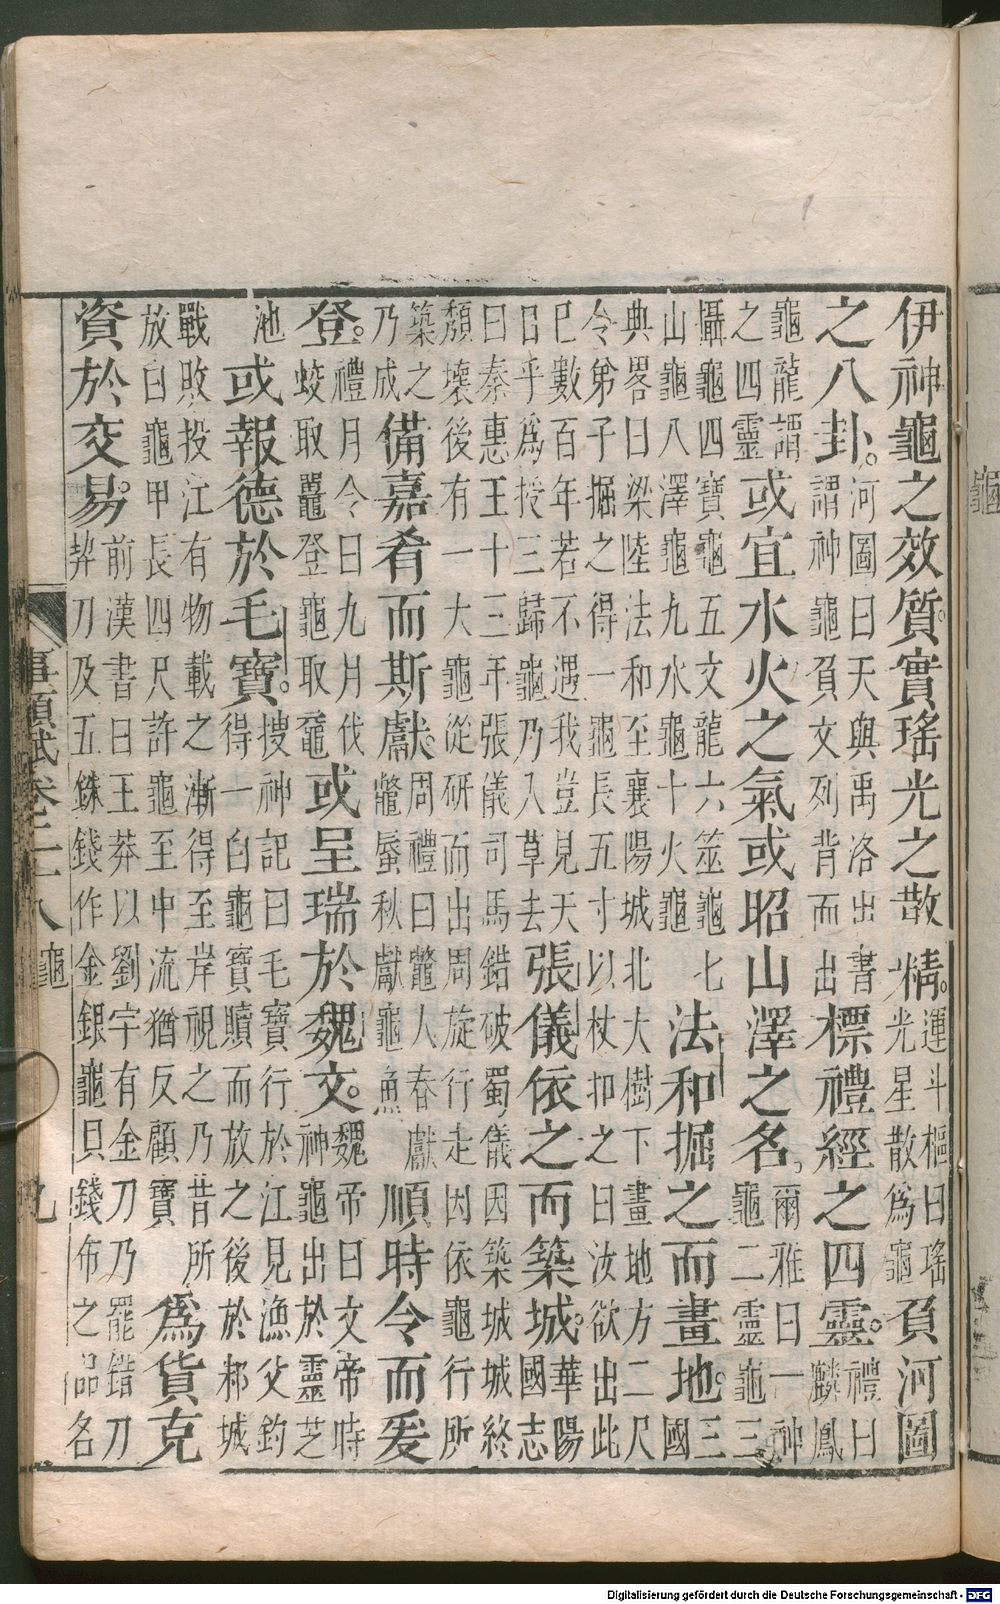 伊神龜之效質。實瑤光之散精。運斗樞曰瑤光星散為龜負河圖
之八卦。河圖曰天與禹洛出書謂神龜負文列背而出標禮經之四靈。禮曰麟鳳
龜龍謂之四靈或宜水火之氣或昭山澤之名，爾雅曰一神龜二靈龜三
攝龜四寶龜五文龍六筮龜七山龜八澤龜九水龜十火龜法和掘之而畫地。三國
典畧曰梁陸法和至襄陽城北大樹下畫地方二尺令弟子掘之得一龜長五寸以杖抑之曰汝欲出此
已數百年若不遇我豈見天日乎為授三歸龜乃入草去張儀依之而築城。華陽國志
曰秦惠王十三年張儀司馬錯破蜀儀因築城城終頹壞後有一大龜從研而出周旋行走因依龜行所
築之乃成備嘉肴而斯獻周禮曰鼈人春獻鼈蜃秋獻龜魚順時令而爰
登。禮月令曰九月伐蛟取鼉登龜取黿或呈瑞於魏文。魏帝曰文帝時神龜出於靈芝
池或報德於毛寶。搜神記曰毛寶行於江見漁父釣得一白龜寶贖而放之後於邾城
戰敗投江有物載之漸得至岸視之乃昔所放白龜甲長四尺許龜至中流猶反顧寶為貨克
資於交易。前漢書曰王莽以劉字有金刀乃罷錯刀契刀及五銖錢作金銀龜貝錢布之品名
事類賦卷二十八 龜 九
龜
Digitalisierung gefördert durch die Deutsche Forschungsgemeinschaft - DFG